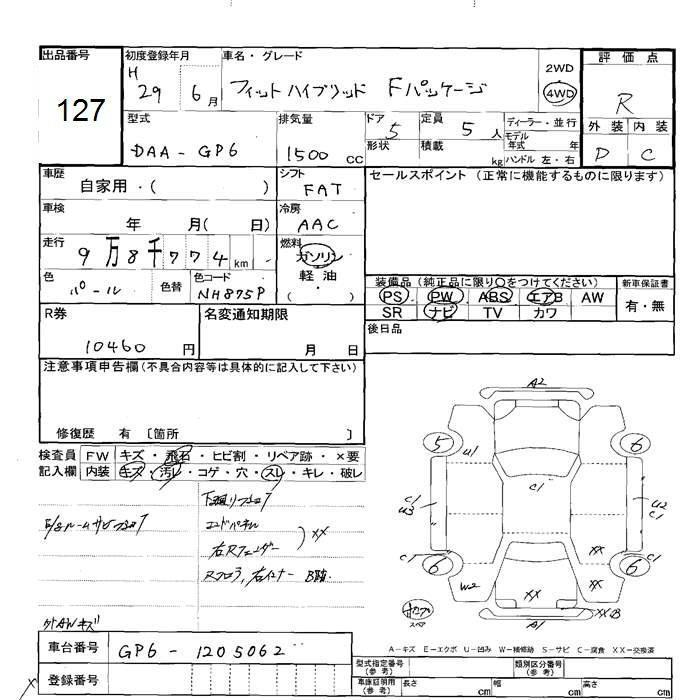 出品番号
127
初度登録年月
H 29 6月
車名・グレード
フィットハイブリッド Fパッケージ
2WD
4WD
評価点
R
外装 内装
D C
型式
DAA-GP6
排気量
1500 CC
ドア 5
形状
定員 5 人
積載 kg
ディーラー・並行
モデル年式 年
ハンドル 左・右
車歴
自家用・( )
シフト
FAT
セールスポイント (正常に機能するものに限ります)
車検
年 月( 日)
冷房
AAC
走行
9万8千774km
燃料
ガソリン
軽油
( ・ )
色
パール
色替
色コード
NH875P
装備品 (純正品に限り〇をつけてください)
PS PW ABS エアB AW
SR ナビ TV カワ
新車保証書
有・無
後日品
R券
10460 円
名変通知期限
月 日
注意事項申告欄(不具合内容等は具体的に記入して下さい)
修復歴 有 〔箇所 〕
検査員記入欄
FW キズ・飛石・ヒビ割・リペア跡・×要
内装 キズ・汚レ・コゲ・穴・スレ・キレ・破レ
エンドパネル
右Rフェンダー
XX
Rフロア,右インナー
外AWキズ
A2
5 U1 6
C1
C1 U3
U2 C1
C1 6 XX 6 C1
W2 XX
スペア
A1 XXB
A-キズ E-エクボ U-凹み W-補修跡 S-サビ C-腐食 XX-交換済
車台番号
GP6-1205062
登録番号
型式指定番号(参考)
類別区分番号(参考)
車庫証明用(参考)
長さ cm
幅 cm
高さ cm